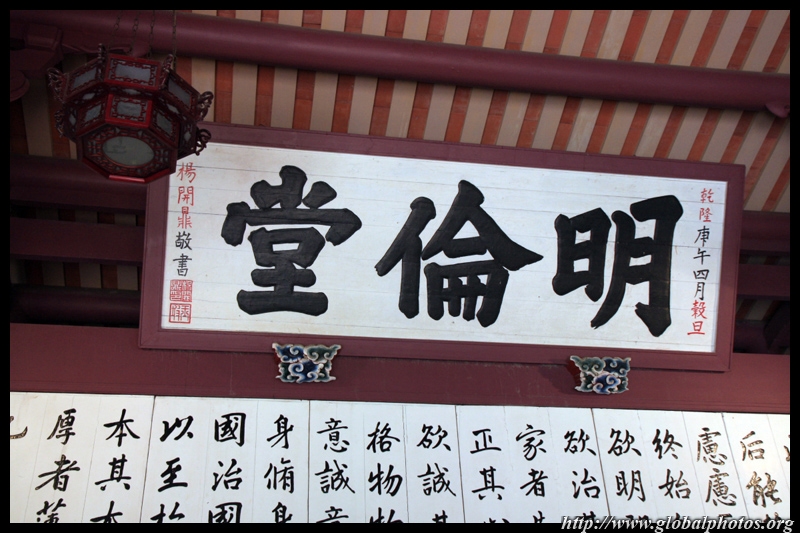 乾隆庚午四月穀旦
明倫堂
楊開鼎敬書
后能
慮慮
終始
欲明
欲治其
家者
正其
欲誠其
格物物
意誠
身脩身
國治國
以至於
本其本
厚者薄
http://www.globalphotos.org